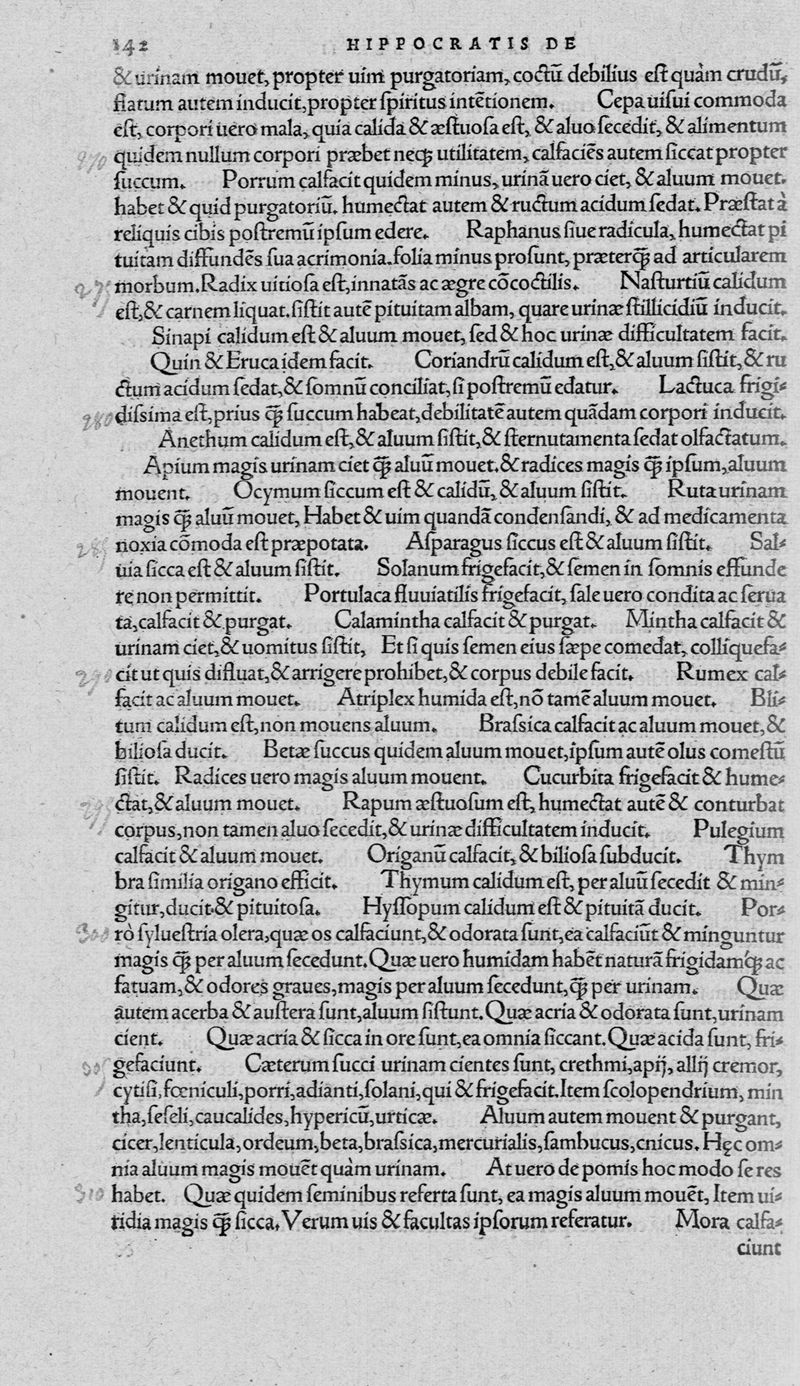 142 HIPPOCRATIS DE
& urinam mouet, propter uim purgatoriam, coctũ debilius est quàm crudũ,
flatum autem inducit, propter spiritus intẽtionem. Cepa uisui commoda
est, corpori uero mala, quia calida & æstuosa est, & aluo secedit, & alimentum
quidem nullum corpori præbet neq; utilitatem, calfaciẽs autem siccat propter
succum. Porrum calfacit quidem minus, urinã uero ciet, & aluum mouet.
habet & quid purgatoriũ. humectat autem & ructum acidum sedat. Præstat à
reliquis cibis postremũ ipsum edere. Raphanus siue radicula, humectat pi
tuitam diffundẽs sua acrimonia. folia minus prosunt, præterq̃ ad articularem
morbum. Radix uitiosa est, innatãs ac ægre cõcoctilis. Nasturtiũ calidum
est, & carnem liquat. sistit autẽ pituitam albam, quare urinæ stillicidiũ inducit.
Sinapi calidum est & aluum mouet, sed & hoc urinæ difficultatem facit.
Quin & Eruca idem facit. Coriandrũ calidum est, & aluum sistit, & ru
ctum acidum sedat, & somnũ conciliat, si postremũ edatur. Lactuca frigi-
dissima est, prius q̃ succum habeat, debilitatẽ autem quãdam corpori inducit.
Anethum calidum est, & aluum sistit, & sternutamenta sedat olfactatum.
Apium magis urinam ciet q̃ aluũ mouet. & radices magis q̃ ipsum, aluum
mouent. Ocymum siccum est & calidũ, & aluum sistit. Ruta urinam
magis q̃ aluũ mouet, Habet & uim quandã condensandi, & ad medicamenta
noxia cõmoda est præpotata. Asparagus siccus est & aluum sistit. Sal-
uia sicca est & aluum sistit. Solanum frigefacit, & semen in somnis effunde
re non permittit. Portulaca fluuiatilis frigefacit, sale uero condita ac serua
ta, calfacit & purgat. Calamintha calfacit & purgat. Mintha calfacit &
urinam ciet, & uomitus sistit, Et si quis semen eius sæpe comedat, colliquefa-
cit ut quis difluat, & arrigere prohibet, & corpus debile facit. Rumex cal-
facit ac aluum mouet. Atriplex humida est, nõ tamẽ aluum mouet. Bli-
tum calidum est, non mouens aluum. Brassica calfacit ac aluum mouet, &
biliosa ducit. Betæ succus quidem aluum mouet, ipsum autẽ olus comestũ
sistit. Radices uero magis aluum mouent. Cucurbita frigefacit & hume-
ctat, & aluum mouet. Rapum æstuosum est, humectat autẽ & conturbat
corpus, non tamen aluo secedit, & urinæ difficultatem inducit. Pulegium
calfacit & aluum mouet. Origanũ calfacit, & biliosa subducit. Thym
bra similia origano efficit. Thymum calidum est, per aluũ secedit & min-
gitur, ducit & pituitosa. Hyssopum calidum est & pituitã ducit. Por-
rò syluestria olera, quæ os calfaciunt, & odorata sunt, ea calfaciũt & minguntur
magis q̃ per aluum secedunt. Quæ uero humidam habẽt naturã frigidamq́; ac
fatuam, & odores graues, magis per aluum secedunt, q̃ per urinam. Quæ
autem acerba & austera sunt, aluum sistunt. Quæ acria & odorata sunt, urinam
cient. Quæ acria & sicca in ore sunt, ea omnia siccant. Quæ acida sunt, fri-
gefaciunt. Cæterum succi urinam cientes sunt, crethmi, apij, allij cremor,
cytisi, fœniculi, porri, adianti, solani, qui & frigefacit. Item scolopendrium, min
tha, seseli, caucalides, hypericũ, urticæ. Aluum autem mouent & purgant,
cicer, lenticula, ordeum, beta, brassica, mercurialis, sambucus, cnicus. Hęc om-
nia aluum magis mouẽt quàm urinam. At uero de pomis hoc modo se res
habet. Quæ quidem seminibus referta sunt, ea magis aluum mouẽt, Item ui-
ridia magis q̃ sicca, Verum uis & facultas ipsorum referatur. Mora calfa-
ciunt